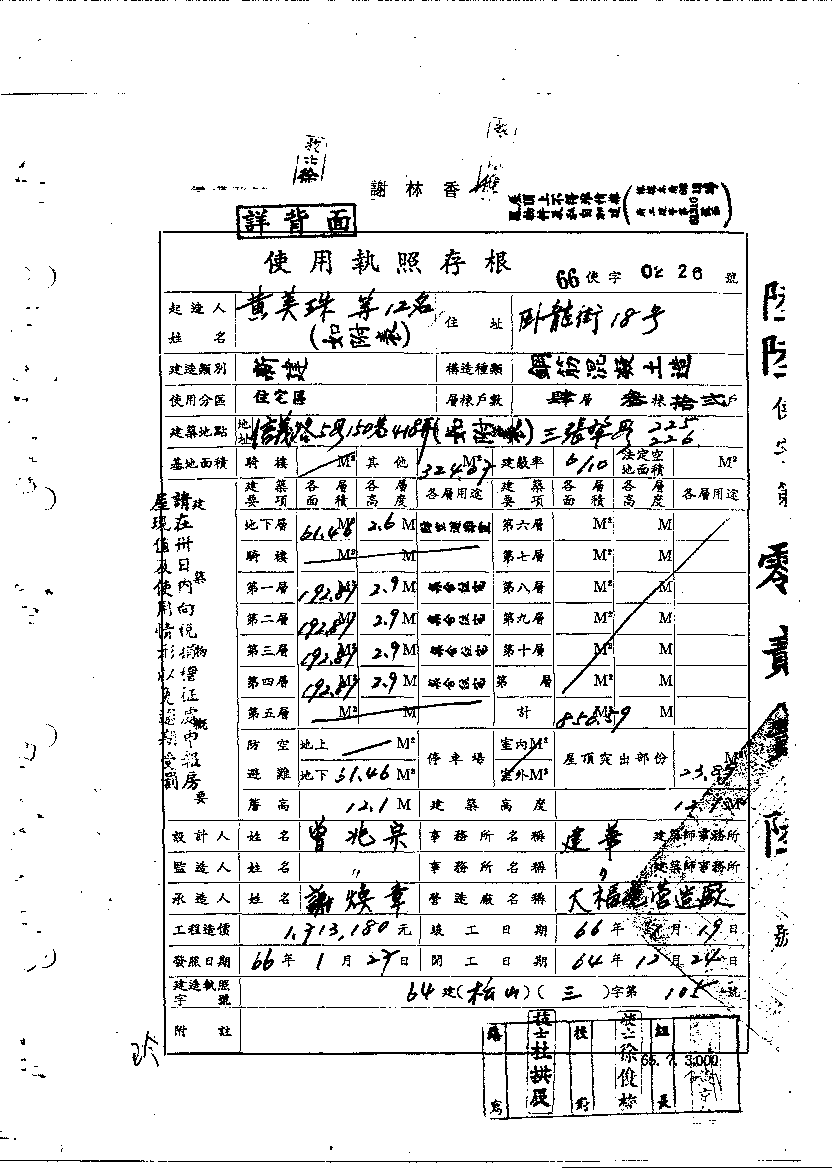 謝林香
詳背面
使用執照存根
66使字0226號
起造人姓名 黃美珠等12名(如附表) 住址 臥龍街18号
建造類別 新建 構造種類 鋼筋混凝土造
使用分區 住宅區 層棟戶數 肆層 棟拾貳戶
建築地點 地址 信義路5段150巷 三張犁段 225 226
基地面積 騎樓 M² 其他 324.67 M² 建蔽率 6/10 法定空地面積 M²
建築要項 各層面積 各層高度 各層用途 建築要項 各層面積 各層高度 各層用途
地下層 61.46 M² 2.6 M 第六層 M² M
騎樓 M² M 第七層 M² M
第一層 192.89 M² 2.9 M 集合住宅 第八層 M² M
第二層 192.89 M² 2.9 M 集合住宅 第九層 M² M
第三層 192.89 M² 2.9 M 集合住宅 第十層 M² M
第四層 192.89 M² 2.9 M 集合住宅 第 層 M² M
第五層 M² M 計 M²
防空避難 地上 M² 停車場 室內M² 屋頂突出部份 M²
地下 61.46 M² 室外M²
簷高 12.1 M 建築高度 M
設計人 姓名 曾兆宗 事務所名稱 建華 建築師事務所
監造人 姓名 〃 事務所名稱 〃 建築師事務所
承造人 姓名 謝煥章 營造廠名稱
工程造價 1,713,180元 竣工日期 66年1月19日
發照日期 66年1月27日 開工日期 64年12月24日
建造執照字號 64建(松山)(三)字第105號
附註
建築物概要
請在卅日內向稅捐稽征處申報房
屋現值及使用情形以免逾期受罰
65.7.3,000
技士杜拱辰
校對
組長
繕寫